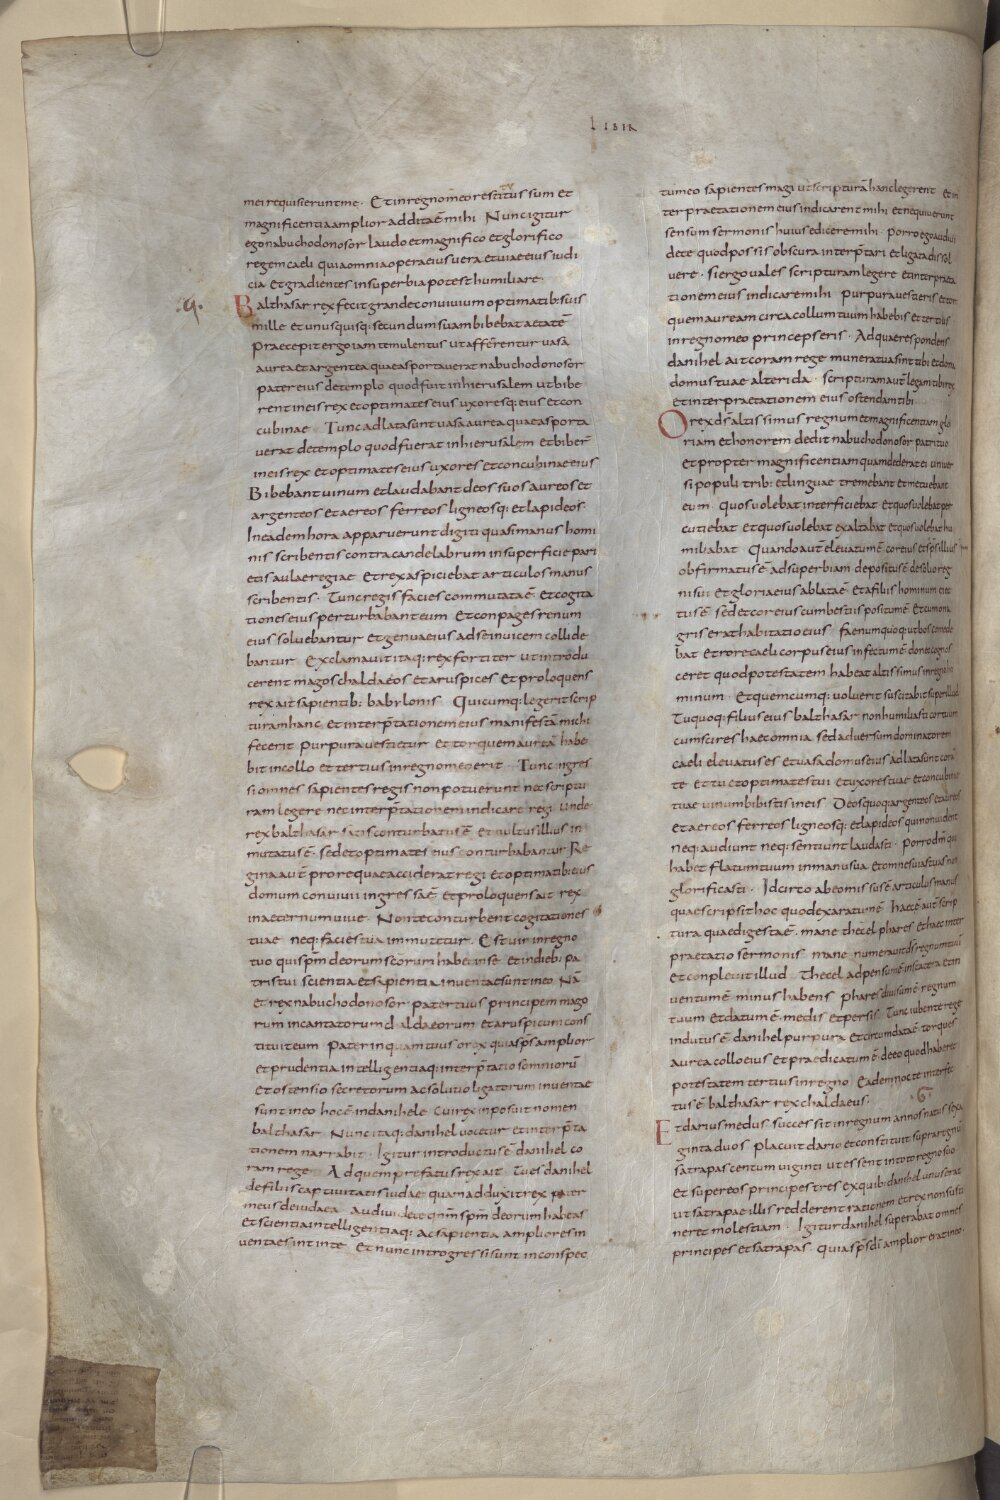 LIBER
mei requisierunt me. Et in regno meo restitutus sum et
magnificentia amplior addita ē mihi Nunc igitur
ego nabuchodonosor laudo et magnifico et glorifico
regem caeli quia omnia opera eius vera et viae eius iudi
cia et gradientes in superbia potest humiliare.
Balthasar rex fecit grande convivium optimatib: suis
mille et unusquisq: secundum suam bibebat aetatē
Praecepit ergo iam temulentus ut afferentur vasa
aurea et argentea quae asportaverat nabuchodonosor
pater eius de templo quod fuit in hierusalem ut bibe
rent in eis rex et optimates eius uxoresq: eius et con
cubinae Tunc adlata sunt vasa aurea quae asporta
verat de templo quod fuerat in hierusalem et biberr̄
in eis rex et optimates eius uxores et concubinae eius
Bibebant vinum et laudabant deos suos aureos et
argenteos et aereos ferreos ligneosq: et lapideos.
In eadem hora apparuerunt digiti quasi manus homi
nis scribentis contra candelabrum in superficie pari
etis aulae regiae Et rex aspiciebat articulos manus
scribentis. Tunc regis facies commutata ē et cogita
tiones eius perturbabant eum Et conpages renum
eius solvebantur et genua eius ad se invicem collide
bantur Exclamavit itaq: rex fortiter ut introdu
cerent magos chaldaeos et aruspices Et proloquens
rex ait sapientib: babylonis Quicumq: legerit scrip
turam hanc et interp̄tationem eius manifestā michi
fecerit purpura vestietur et torquem aureā habe
bit in collo et tertius in regno meo erit Tunc ingres
si omnes sapientes regis non potuerunt nec scriptu
ram legere nec interp̄tationem indicare regi unde
rex balthasar satis conturbatus ē et vultus illius in
mutatus ē. sed et optimates eius conturbabantur Re
gina aut̄ pro re quae acciderat regi et optimatib: eius
domum convivii ingressa ē et proloquens ait rex
in aeternum vive Non te conturbent cogitationes
tuae neq: facies tua immutetur. Est vir in regno
tuo qui sp̄m deorum sc̄orum habet in se et in dieb: pa
tris tui scientia et sapientia inventae sunt in eo Nā
et rex nabuchodonosor pater tuus principem mago
rum incantatorum chaldaeorum et aruspicum cons
tituit eum Pater inquam tuus o rex quia sp̄s amplior
et prudentia intelligentiaq: interp̄tatio somniorū
et ostensio secretorum ac solutio ligatorum inventae
sunt in eo hoc ē in danihele cui rex inposuit nomen
balthasar Nunc itaq: danihel vocetur et interp̄ta
tionem narrabit. Igitur introductus ē danihel co
ram rege Ad quem prefatus rex ait Tu es danihel
de filiis captivitatis iudae quam adduxit rex pater
meus de iudaea Audivi de te qnm̄ sp̄m deorum habeas
et scientia intelligentiaq: ac sapientia ampliores in
ventae sint in te Et nunc introgressi sunt in conspec
tu meo sapientes magi ut scripturā hanc legerent et in
terpraetationem eius indicarent mihi et nequiverunt
sensum sermonis huius edicere mihi. Porro ego audivi
de te quod possis obscura interp̄tari et ligata dissol
vere. si ergo vales scripturam legere et interpraeta
tionem eius indicare mihi purpura vestieris et tor
quem auream circa collum tuum habebis et tertius
in regno meo princeps eris. Ad quae respondens
danihel ait coram rege munera tua sint tibi et dona
domus tuae alteri da. scripturam aut̄ legam tibi rex
et interpraetationem eius ostendam tibi
O rex dš altissimus regnum et magnificentiam glo
riam et honorem dedit nabuchodonosor patri tuo
et propter magnificentiam quam dederat ei univer
si populi trib: et linguae tremebant et metuebant
eum Quos volebat interficiebat et quos volebat per
cutiebat et quos volebat exaltabat et quos volebat hu
miliabat Quando aut̄ elevatum ē cor eius et sp̄s illius
obfirmatus ē ad superbiam depositus ē de solio reg
ni sui et gloria eius ablata ē Et a filiis hominum eiec
tus ē sed et cor eius cum bestiis positum ē et cum ona
gris erat habitatio eius faenum quoq: ut bos comede
bat et rore caeli corpus eius infectum ē donec cognos
ceret quod potestatem habeat altissimus in regno ho
minum Et quemcumq: voluerit suscitabit super illud
Tu quoq: filius eius balthasar non humiliasti cor tuum
cum scires haec omnia sed adversum dominatorem
caeli elevatus es et vasa domus eius adlata sunt corā
te et tu et optimates tui et uxores tuae et concubinae
tuae vinum bibistis in eis Deos quoq: argenteos et aureos
et aereos ferreos ligneosq: et lapideos qui non vident
neq: audiunt neq: sentiunt laudasti. Porro dm̄ qui
habet flatum tuum in manu sua et omnes vias tuas non
glorificasti. Idcirco ab eo missus ē articulus manus
quae scripsit hoc quod exaratum ē haec ē aut̄ scrip
tura quae digesta ē. mane thecel phares et haec inter
praetatio sermonis mane numeravit dš regnum tuum
et conplevit illud Thecel adpensum ē in statera et in
ventum ē minus habens Phares divisum ē regnum
tuum et datum ē medis et persis Tunc iubente rege
indutus ē danihel purpura et circumdata ē torques
aurea collo eius et praedicatum ē de eo quod haberet
potestatem tertius in regno Eadem nocte interfec
tus ē balthasar rex chaldaeus.
Et darius medus successit in regnum annos natus sexa
ginta duos Placuit dario et constituit supra regnū
satrapas centum viginti ut essent in toto regno suo
et super eos principes tres ex quib: danihel unus erat
ut satrapae illis redderent rationem et rex non susti
neret molestiam. Igitur danihel superabat omnes
principes et satrapas. quia sp̄s dī amplior erat in eo